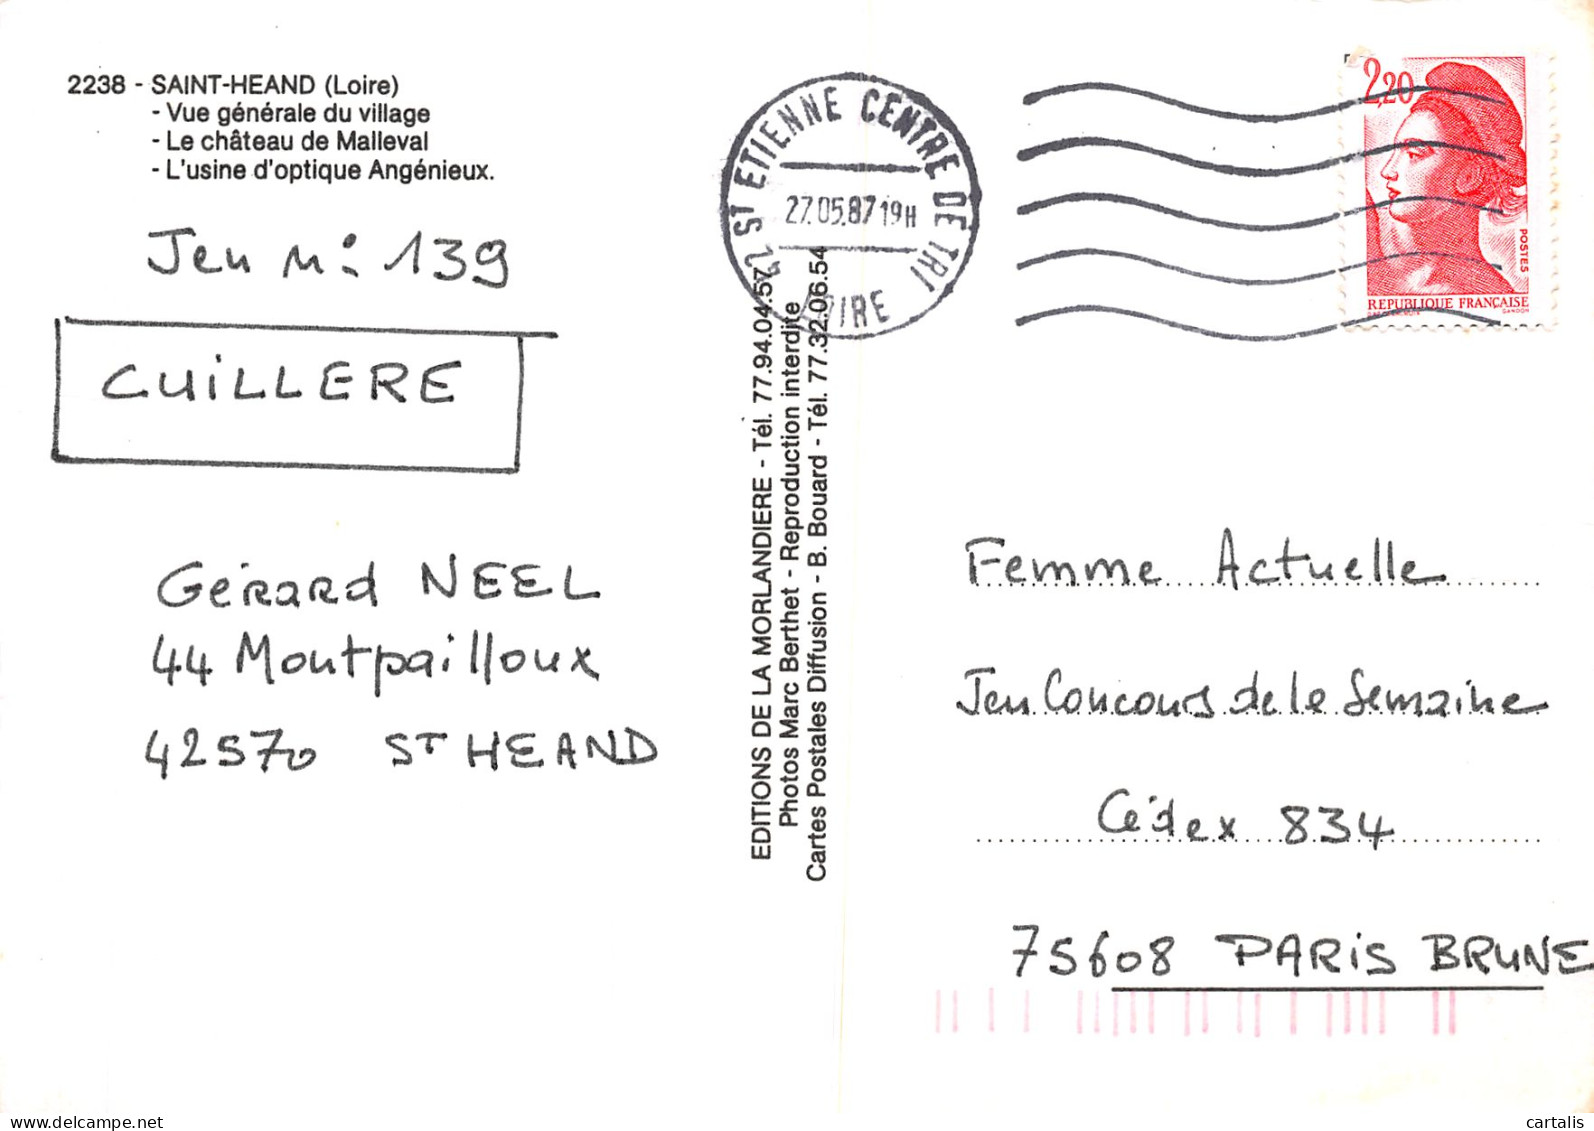 2238 - SAINT-HEAND (Loire)
- Vue générale du village
- Le château de Malleval
- L'usine d'optique Angénieux.
Jeu n° 139
CUILLERE
Gérard NEEL
44 Montpailloux
42570 ST HEAND
EDITIONS DE LA MORLANDIERE - Tél. 77.94.04.57
Photos Marc Berthet - Reproduction interdite
Cartes Postales Diffusion - B. Bouard - Tél. 77.32.06.54
42 ST ETIENNE CENTRE DE TRI
27.05.87 19H
LOIRE
2,20
POSTES
REPUBLIQUE FRANÇAISE
GANDON
Femme Actuelle
Jeu Concours de le Semaine
Cédex 834
75608 PARIS BRUNE
www.delcampe.net
cartalis